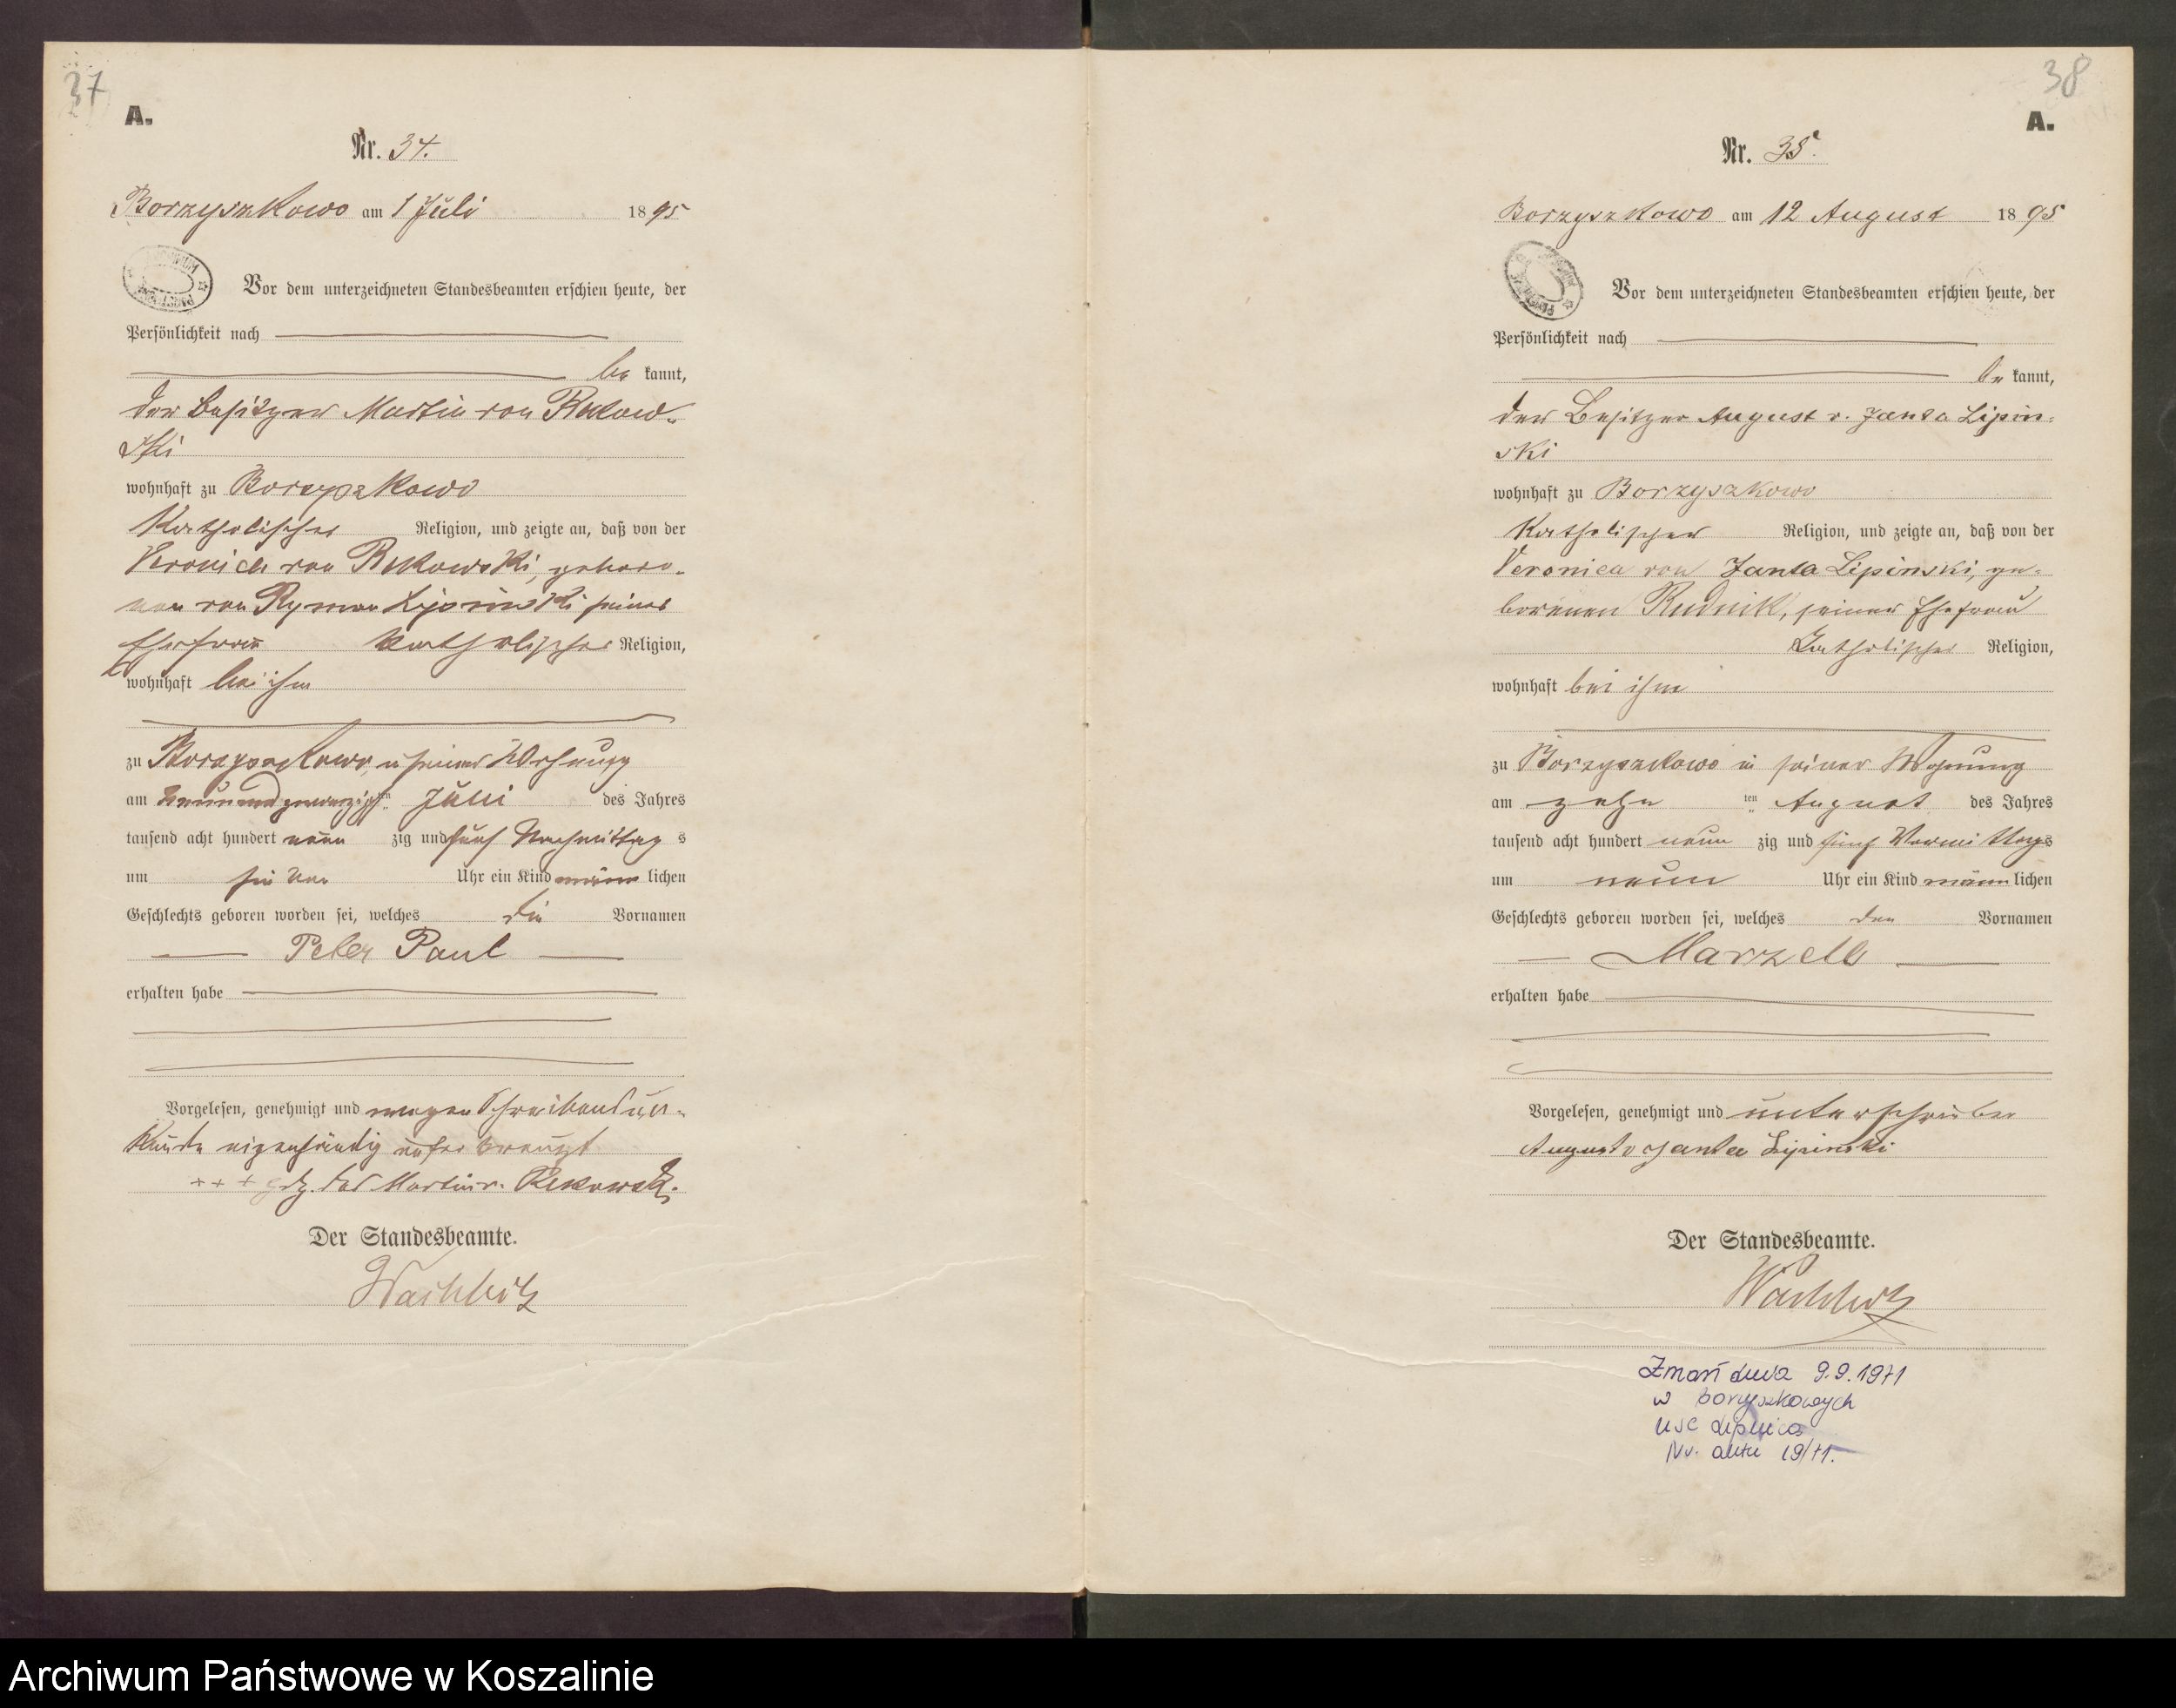 37
A.
Nr. 34.
Borzyszkowo am 1 Juli 1895
Vor dem unterzeichneten Standesbeamten erschien heute, der
Persönlichkeit nach
be kannt,
der Besitzer Martin von Rekow-
ski
wohnhaft zu Borzyszkowo
Katholischer Religion, und zeigte an, daß von der
Veronica von Rekowski, gebore-
nen von Ryman Lipinski seiner
Ehefrau katholischer Religion,
wohnhaft bei ihm
zu Borzyszkowo in seiner Wohnung
am neunundzwanzigsten des Jahres
tausend acht hundert neun zig und fünf Nachmittag s
um Uhr ein Kind männ lichen
Geschlechts geboren worden sei, welches die Vornamen
Peter Paul
erhalten habe
Vorgelesen, genehmigt und wegen Schreibensun-
kunde eigenhändig unterkreuzt
+++ der Martin v. Rekowski
Der Standesbeamte.
Wachholz
38
A.
Nr. 35.
Borzyszkowo am 12 August 1895
Vor dem unterzeichneten Standesbeamten erschien heute, der
Persönlichkeit nach
be kannt,
der Besitzer August v. Janta Lipin-
ski
wohnhaft zu Borzyszkowo
Katholischer Religion, und zeigte an, daß von der
Veronica von Janta Lipinski, ge-
borenen Rudnik, seiner Ehefrau
Katholischer Religion,
wohnhaft bei ihm
zu Borzyszkowo in seiner Wohnung
am zehn ten August des Jahres
tausend acht hundert neun zig und fünf Vormittags
um neun Uhr ein Kind männ lichen
Geschlechts geboren worden sei, welches den Vornamen
Marzell
erhalten habe
Vorgelesen, genehmigt und unterschrieben
August v Janta Lipinski
Der Standesbeamte.
Wachholz
Zmarł dnia 9.9.1971
w Borzyszkowych
USC Lipnica
Nr. aktu 19/71.
Archiwum Państwowe w Koszalinie